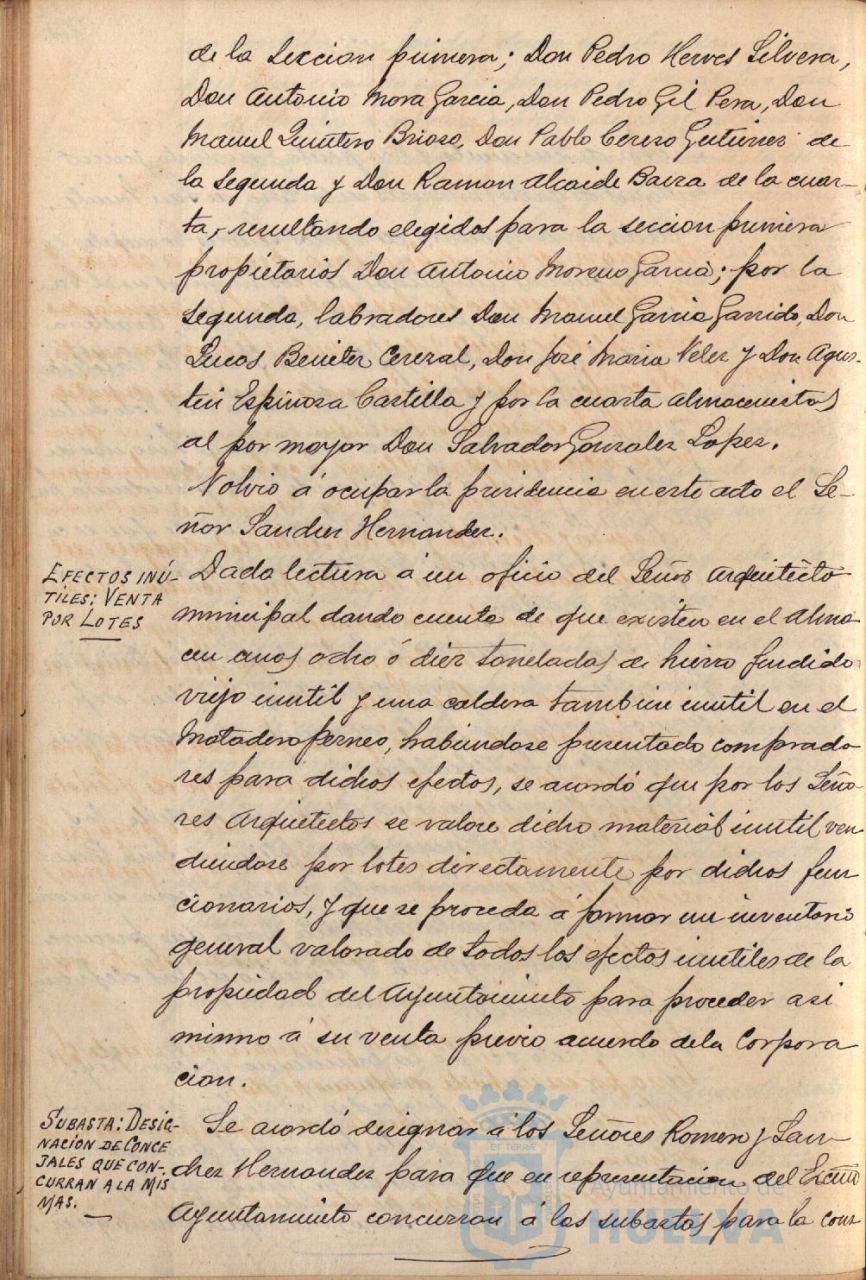 de la Seccion primera; Don Pedro Herves Silvera,
Don Antonio Mora Garcia, Don Pedro Gil Pera, Don
Manuel Quintero Brioso, Don Pablo Cerero Gutierrez de
la segunda y Don Ramon Alcaide Baeza de la cuar-
ta, resultando elegidos para la seccion primera
propietarios Don Antonio Moreno Garcia; por la
segunda, labradores Don Manuel Garcia Garrido, Don
Lucas Beniter Cerezal, Don José Maria Velez y Don Agus-
tin Espinosa Castilla y por la cuarta almacenistas
al por mayor Don Salvador Gonzalez Lopez.
Volvio á ocupar la presidencia en este acto el Se-
ñor Sanchez Hernandez.
EFECTOS INÚ-
TILES: VENTA
POR LOTES
Dada lectura á un oficio del Señor Arquitecto
municipal dando cuenta de que existen en el Alma
cen unos ocho ó diez toneladas de hierro fundido
viejo inutil y una caldera tambien inutil en el
Matadero , habiendose presentado comprado
res para dichos efectos, se acordó que por los Seño
res Arquitectos se valore dicho material inutil ven
diendose por lotes directamente por dichos fun
cionarios, y que se proceda á formar un inventario
general valorado de todos los efectos inutiles de la
propiedad del Ayuntamiento para proceder asi
mismo á su venta previo acuerdo de la Corpora
cion.
SUBASTA: DESIG-
NACION DE CONCE
JALES QUE CON-
CURRAN A LA MIS
MAS.
Se acordó designar á los Señores Romero y San
chez Hernandez para que en representacion del Excmo
Ayuntamiento concurran á las subastas para la cons
Ayuntamiento de
HUELVA